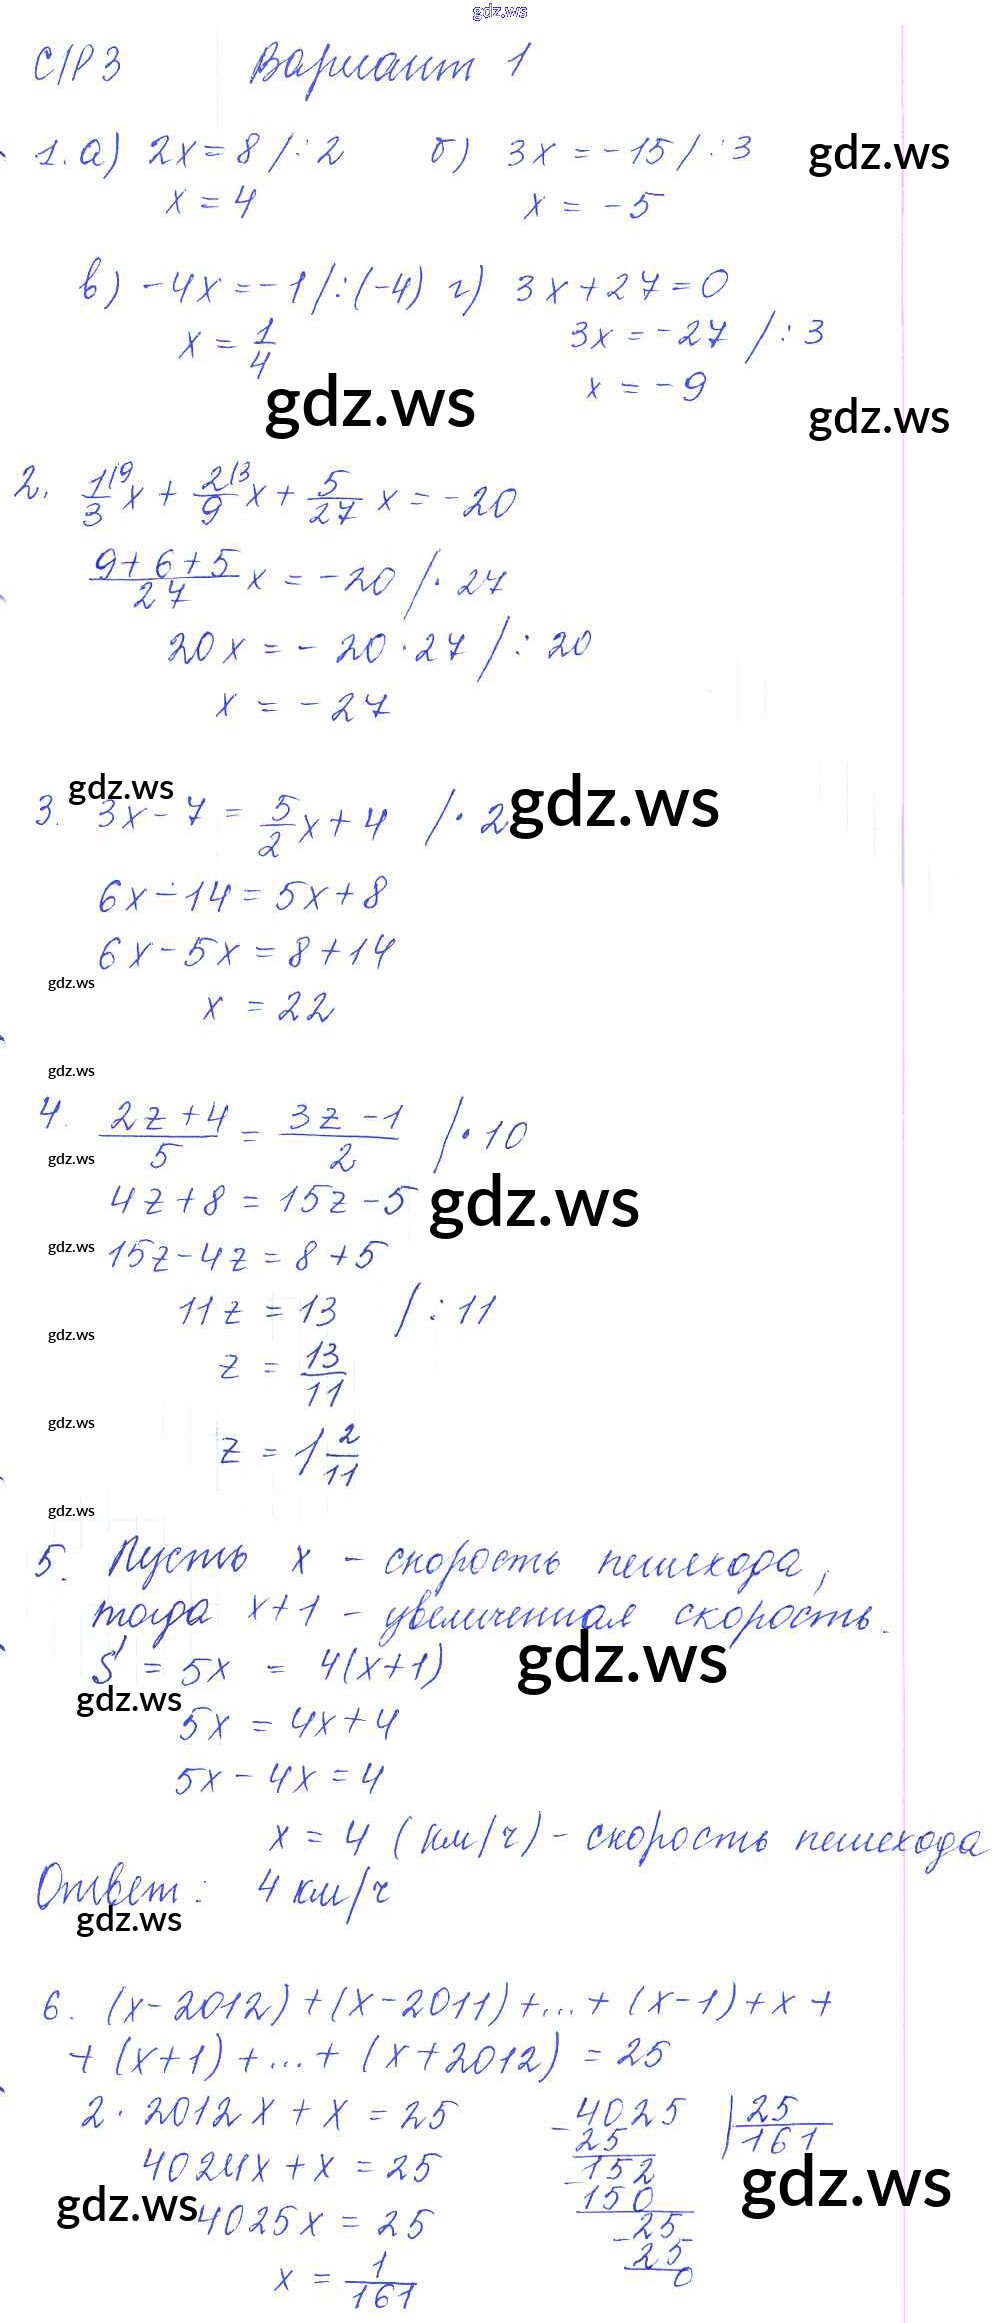 gdz.ws
С/Р 3 Вариант 1
1. а) 2x = 8 /:2 б) 3x = -15 /:3
gdz.ws
x = 4 x = -5
в) -4x = -1 /:(-4) г) 3x + 27 = 0
x = 1/4 3x = -27 /:3
x = -9
gdz.ws gdz.ws
2. 1/3 \9 x + 2/9 \3 x + 5/27 x = -20
(9+6+5)/27 x = -20 /· 27
20x = -20 · 27 /: 20
x = -27
gdz.ws gdz.ws
3. 3x - 7 = 5/2 x + 4 /· 2
6x - 14 = 5x + 8
6x - 5x = 8 + 14
gdz.ws
x = 22
gdz.ws
4. (2z + 4)/5 = (3z - 1)/2 /· 10
gdz.ws
4z + 8 = 15z - 5
gdz.ws
gdz.ws
15z - 4z = 8 + 5
11z = 13 /: 11
gdz.ws
z = 13/11
gdz.ws
z = 1 2/11
gdz.ws
5. Пусть x - скорость пешехода,
тогда x+1 - увеличенная скорость.
S = 5x = 4(x+1)
gdz.ws
gdz.ws
5x = 4x + 4
5x - 4x = 4
x = 4 (км/ч) - скорость пешехода
Ответ: 4 км/ч
gdz.ws
6. (x-2012)+(x-2011)+...+(x-1)+x+
+(x+1)+...+(x+2012) = 25
2 · 2012x + x = 25 4025 | 25
25 161
4024x + x = 25 152
gdz.ws
150
gdz.ws
4025x = 25 25
25
x = 1/161 0